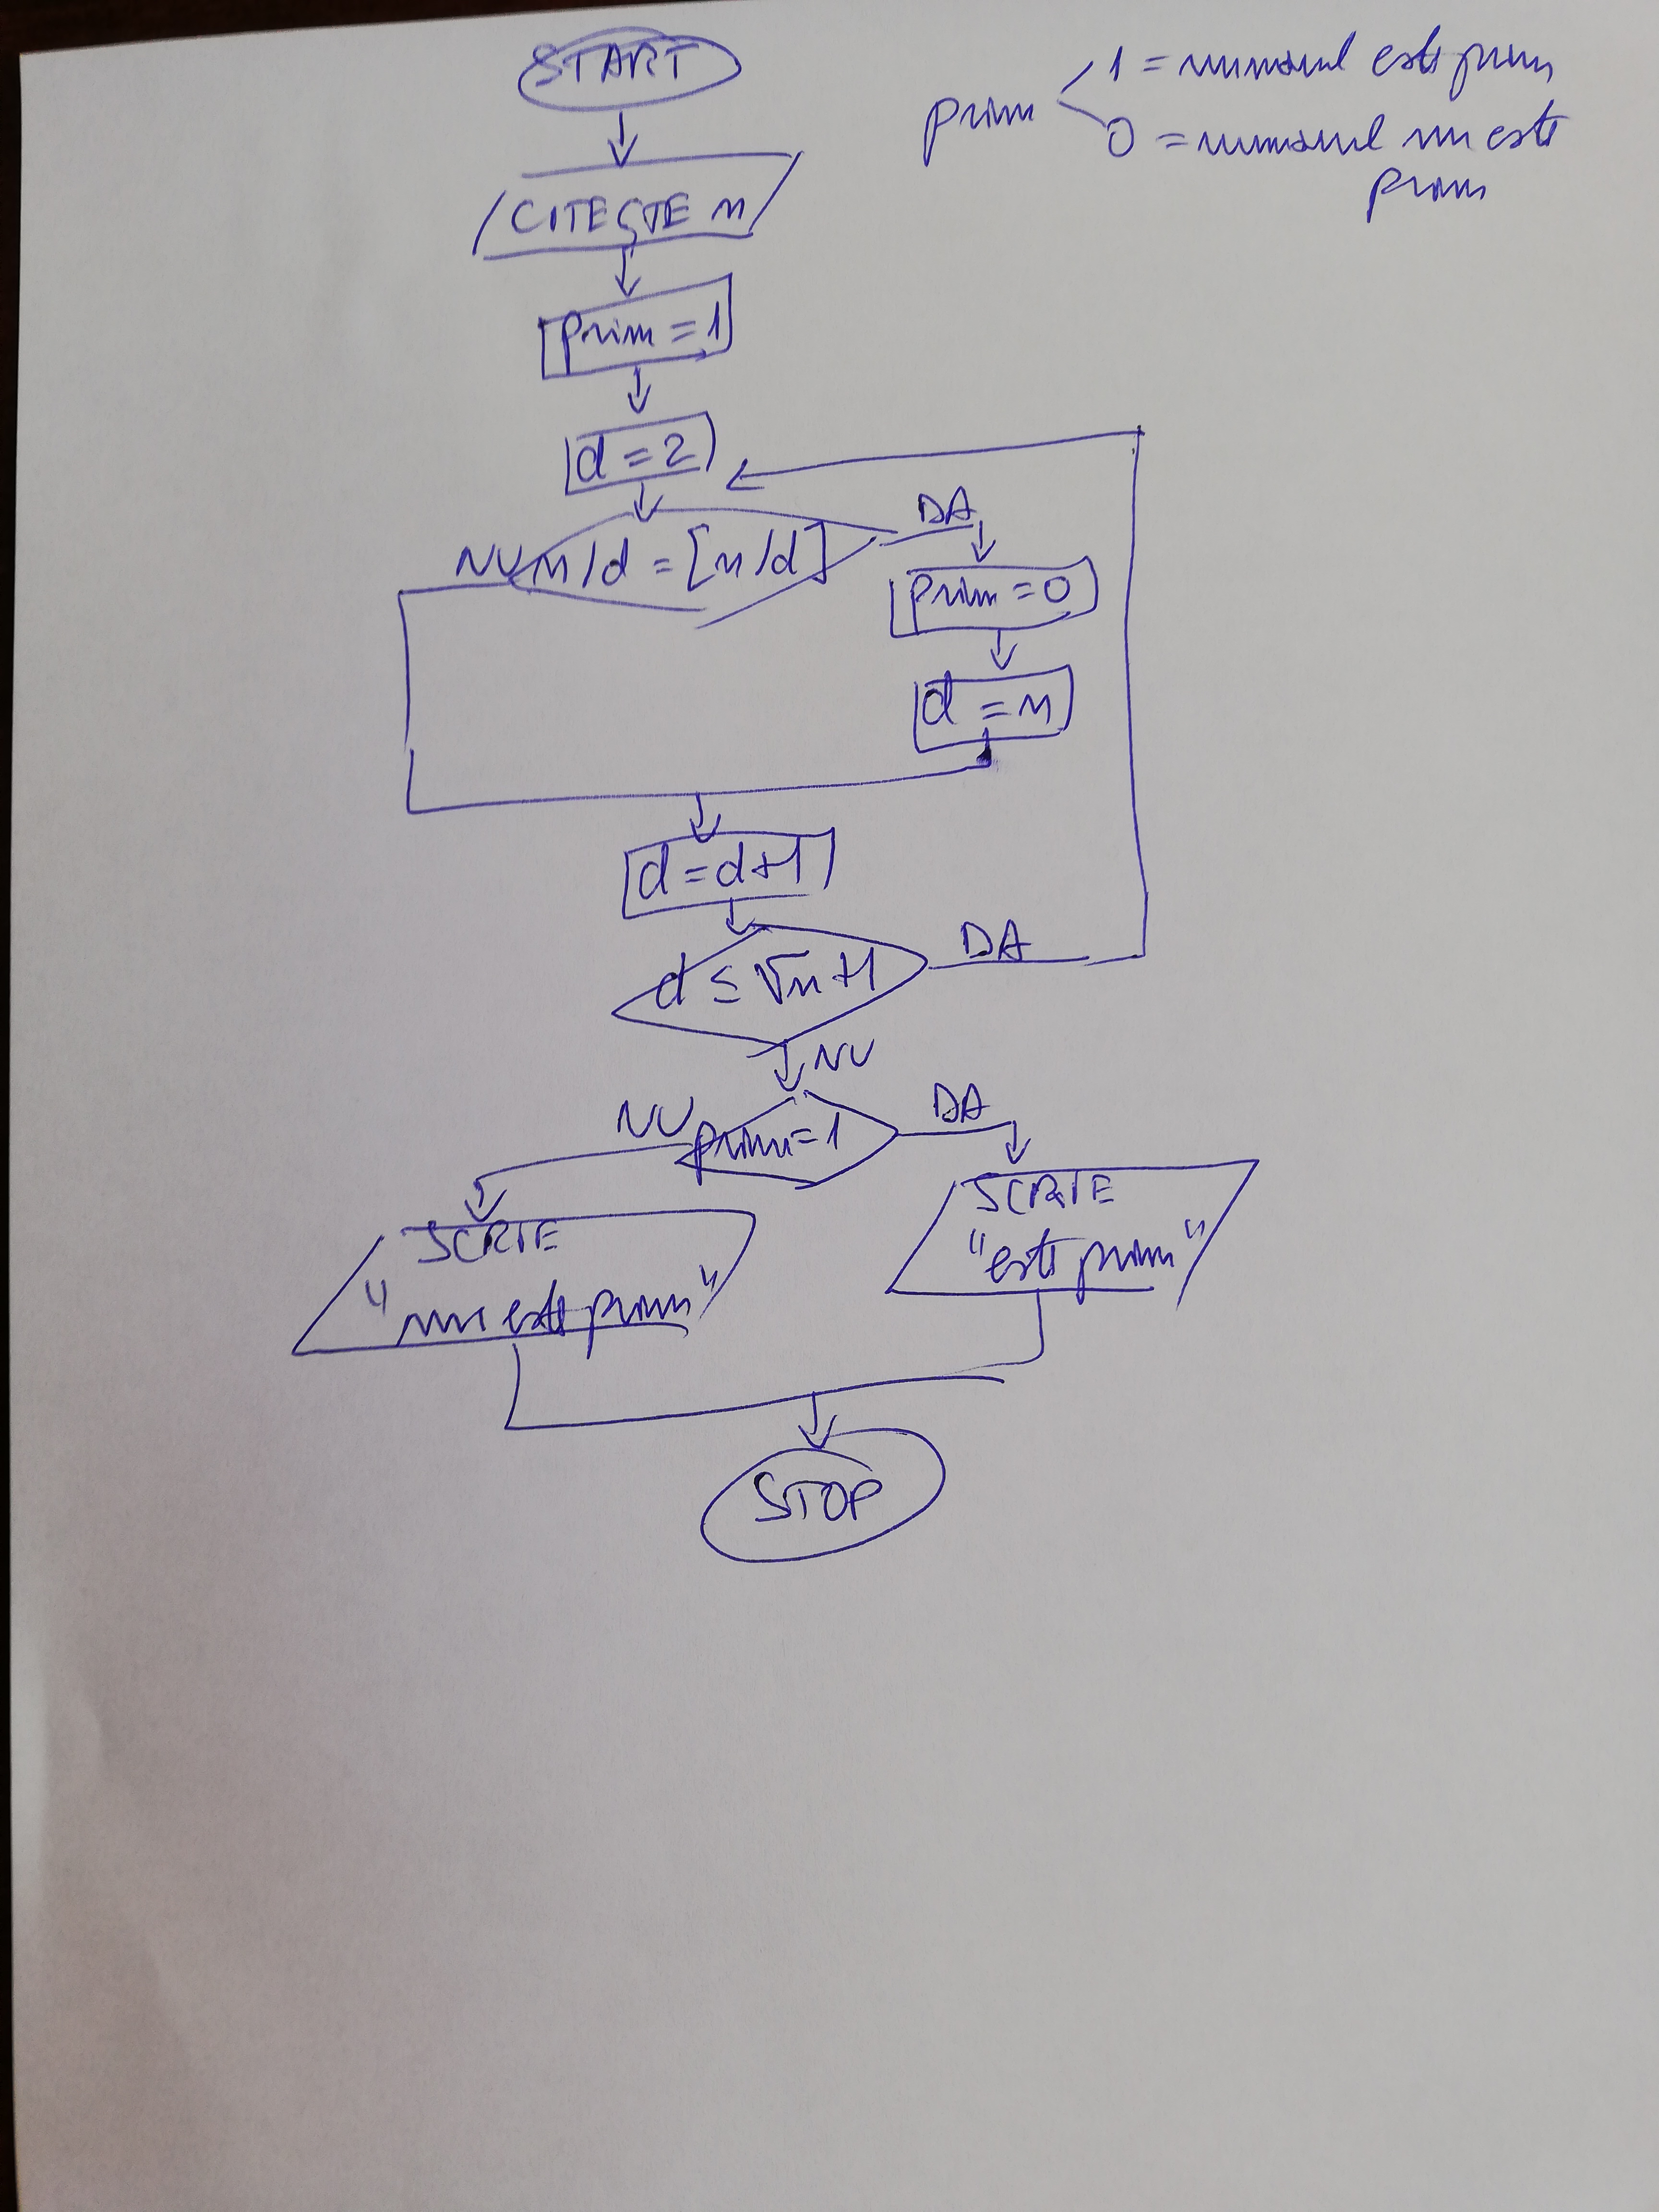 START
prim
1 = numărul este prim
0 = numărul nu este
prim
CITEȘTE n
prim = 1
d = 2
NU
n/d = [n/d]
DA
prim = 0
d = n
d = d+1
d ≤ √n+1
DA
NU
NU
prim=1
DA
SCRIE
"este prim"
SCRIE
"nu este prim"
STOP